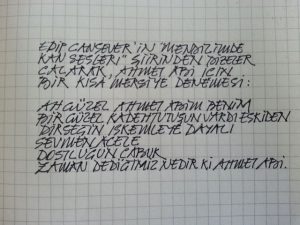 EDİP CANSEVER'İN "MENDİLİMDE
KAN SESLERİ" ŞİİRİNDEN DİZELER
ÇALARAK, AHMET ABİ İÇİN
BİR KISA MERSİYE DENEMESİ:

AH GÜZEL AHMET ABİM BENİM
BİR GÜZEL KADEH TUTUŞUN VARDI ESKİDEN
DİRSEĞİN İSKEMLEYE DAYALI
SEVMEN ACELE
DOSTLUĞUN ÇABUK
ZAMAN DEDİĞİMİZ NEDİR Kİ AHMET ABİ.